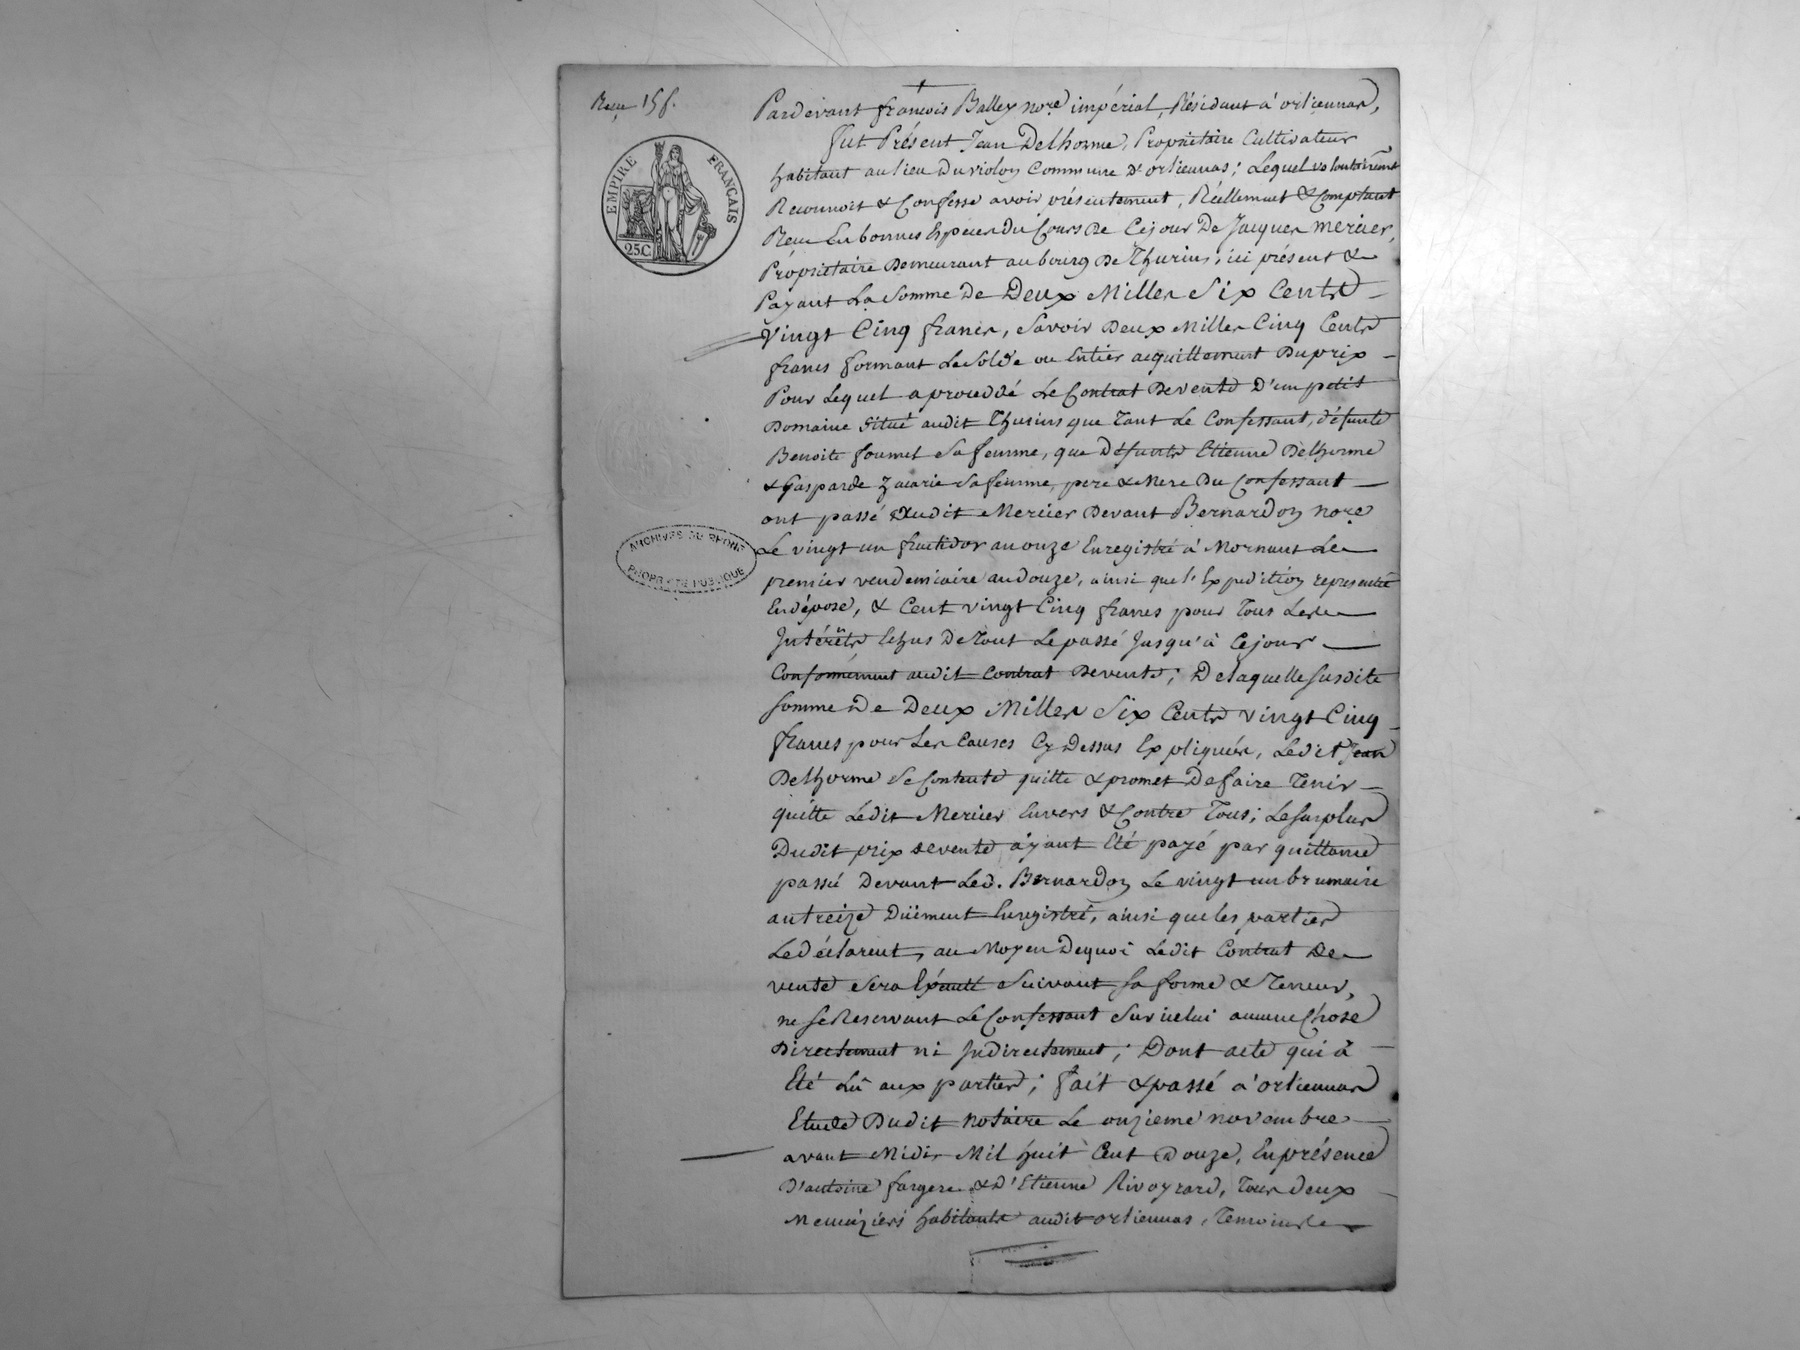 Reçu 15 f.
EMPIRE FRANÇAIS
25C
ARCHIVES DU RHONE
PROPRIÉTÉ PUBLIQUE
Pardevant françois Balley nore. impérial, Résidant à orliennas,
fut Présent Jean Delhorme, Proprietaire Cultivateur
habitant au lieu Duviolon Commune d'orliennas; Lequel volontairemt
Reconnoit & Confesse avoir présentement, Réellement & Comptant
Reçu En bonnes Espèces du Cours De Cejour De Jacques mercier,
Propriétaire Demeurant au bourg De Thurins, ici présent &
Payant La Somme De Deux Milles Six Cents
Vingt Cinq francs, Savoir Deux Milles Cinq Cents
francs formant Le Solde ou Entier acquittement Du prix
Pour Lequel a procédé Le Contrat De vente D'un petit
Domaine Situé audit Thurins que Tant Le Confessant, défunte
Benoite foumet Sa femme, que Défunts Etienne Delhorme
& Gasparde Zacarie Sa femme, pere & Mere Du Confessant
ont passé Audit Mercier Devant Bernardon nore.
Le vingt un fructidor an onze Enregistré à Mornant Le
premier vendemiaire an douze, ainsi que l'Expedition representée
En dépose, & Cent vingt Cinq francs pour Tous Les
Intérêts Echus De Tout Le passé Jusqu'à Cejour
Conformément audit Contrat De vente; De laquelle Susdite
Somme De Deux Milles Six Cents vingt Cinq
francs pour Les Causes Cy Dessus Expliquées, Ledit Jean
Delhorme Se Contente quitte & promet De faire Tenir
quitte Ledit Mercier Envers & Contre Tous; Le Surplus
Dudit prix de vente ayant Eté payé par quittance
passée Devant Led. Bernardon Le vingt un brumaire
an treize Düement Enregistré, ainsi que les parties
Le déclarent, au Moyen Dequoi Ledit Contrat De
vente Sera Exécuté Suivant Sa forme & Teneur,
ne Se Reservant Le Confessant Sur icelui aucune Chose
Directement ni Indirectement; Dont acte qui à
Eté Lû aux parties; fait & passé à orliennas
Etude Dudit notaire Le onzieme novembre
avant Midi, Mil huit Cent Douze, En présence
D'antoine fargere & D'Etienne Rivoyrard, Tous deux
Menuiziers habitants audit orliennas, Temoins